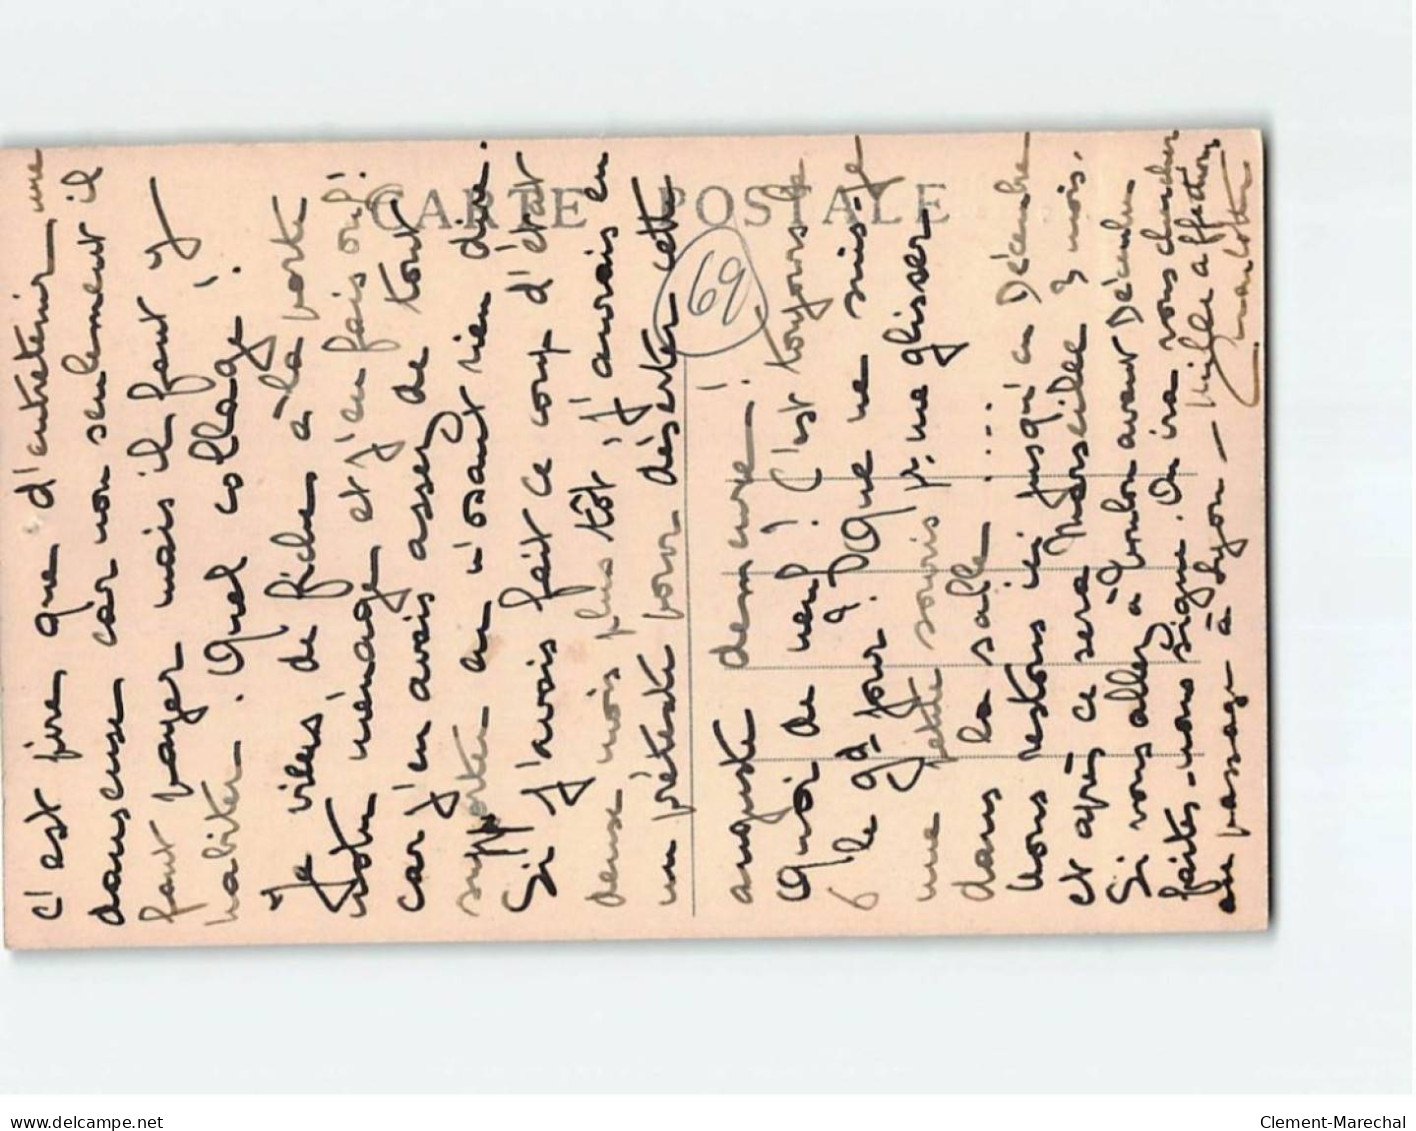 CARTE POSTALE
69
c'est pire que d'entretenir une
danseuse car non seulement il
faut payer mais il faut y
habiter. Quel collage !
Je viens de ficher à la porte
notre ménage et j'en fais ouf !
car j'en avais assez de tout
supporter en n'osant rien dire.
Si j'avais fait ce coup d'état
deux mois plus tôt, j'aurais eu
un prétexte pour déserter cette
auguste demeure !
Quoi de neuf ? C'est toujours le
6 le gd jour ? Que ne suis-je
une petite souris pr. me glisser
dans la salle ....
Nous restons ici jusqu'en Décembre
et après ce sera Marseille 3 mois.
Si vous allez à Toulon avant Décembre
faites-nous signe. On ira vous chercher
au passage à Lyon - Mille affections
Clement-Marechal
www.delcampe.net